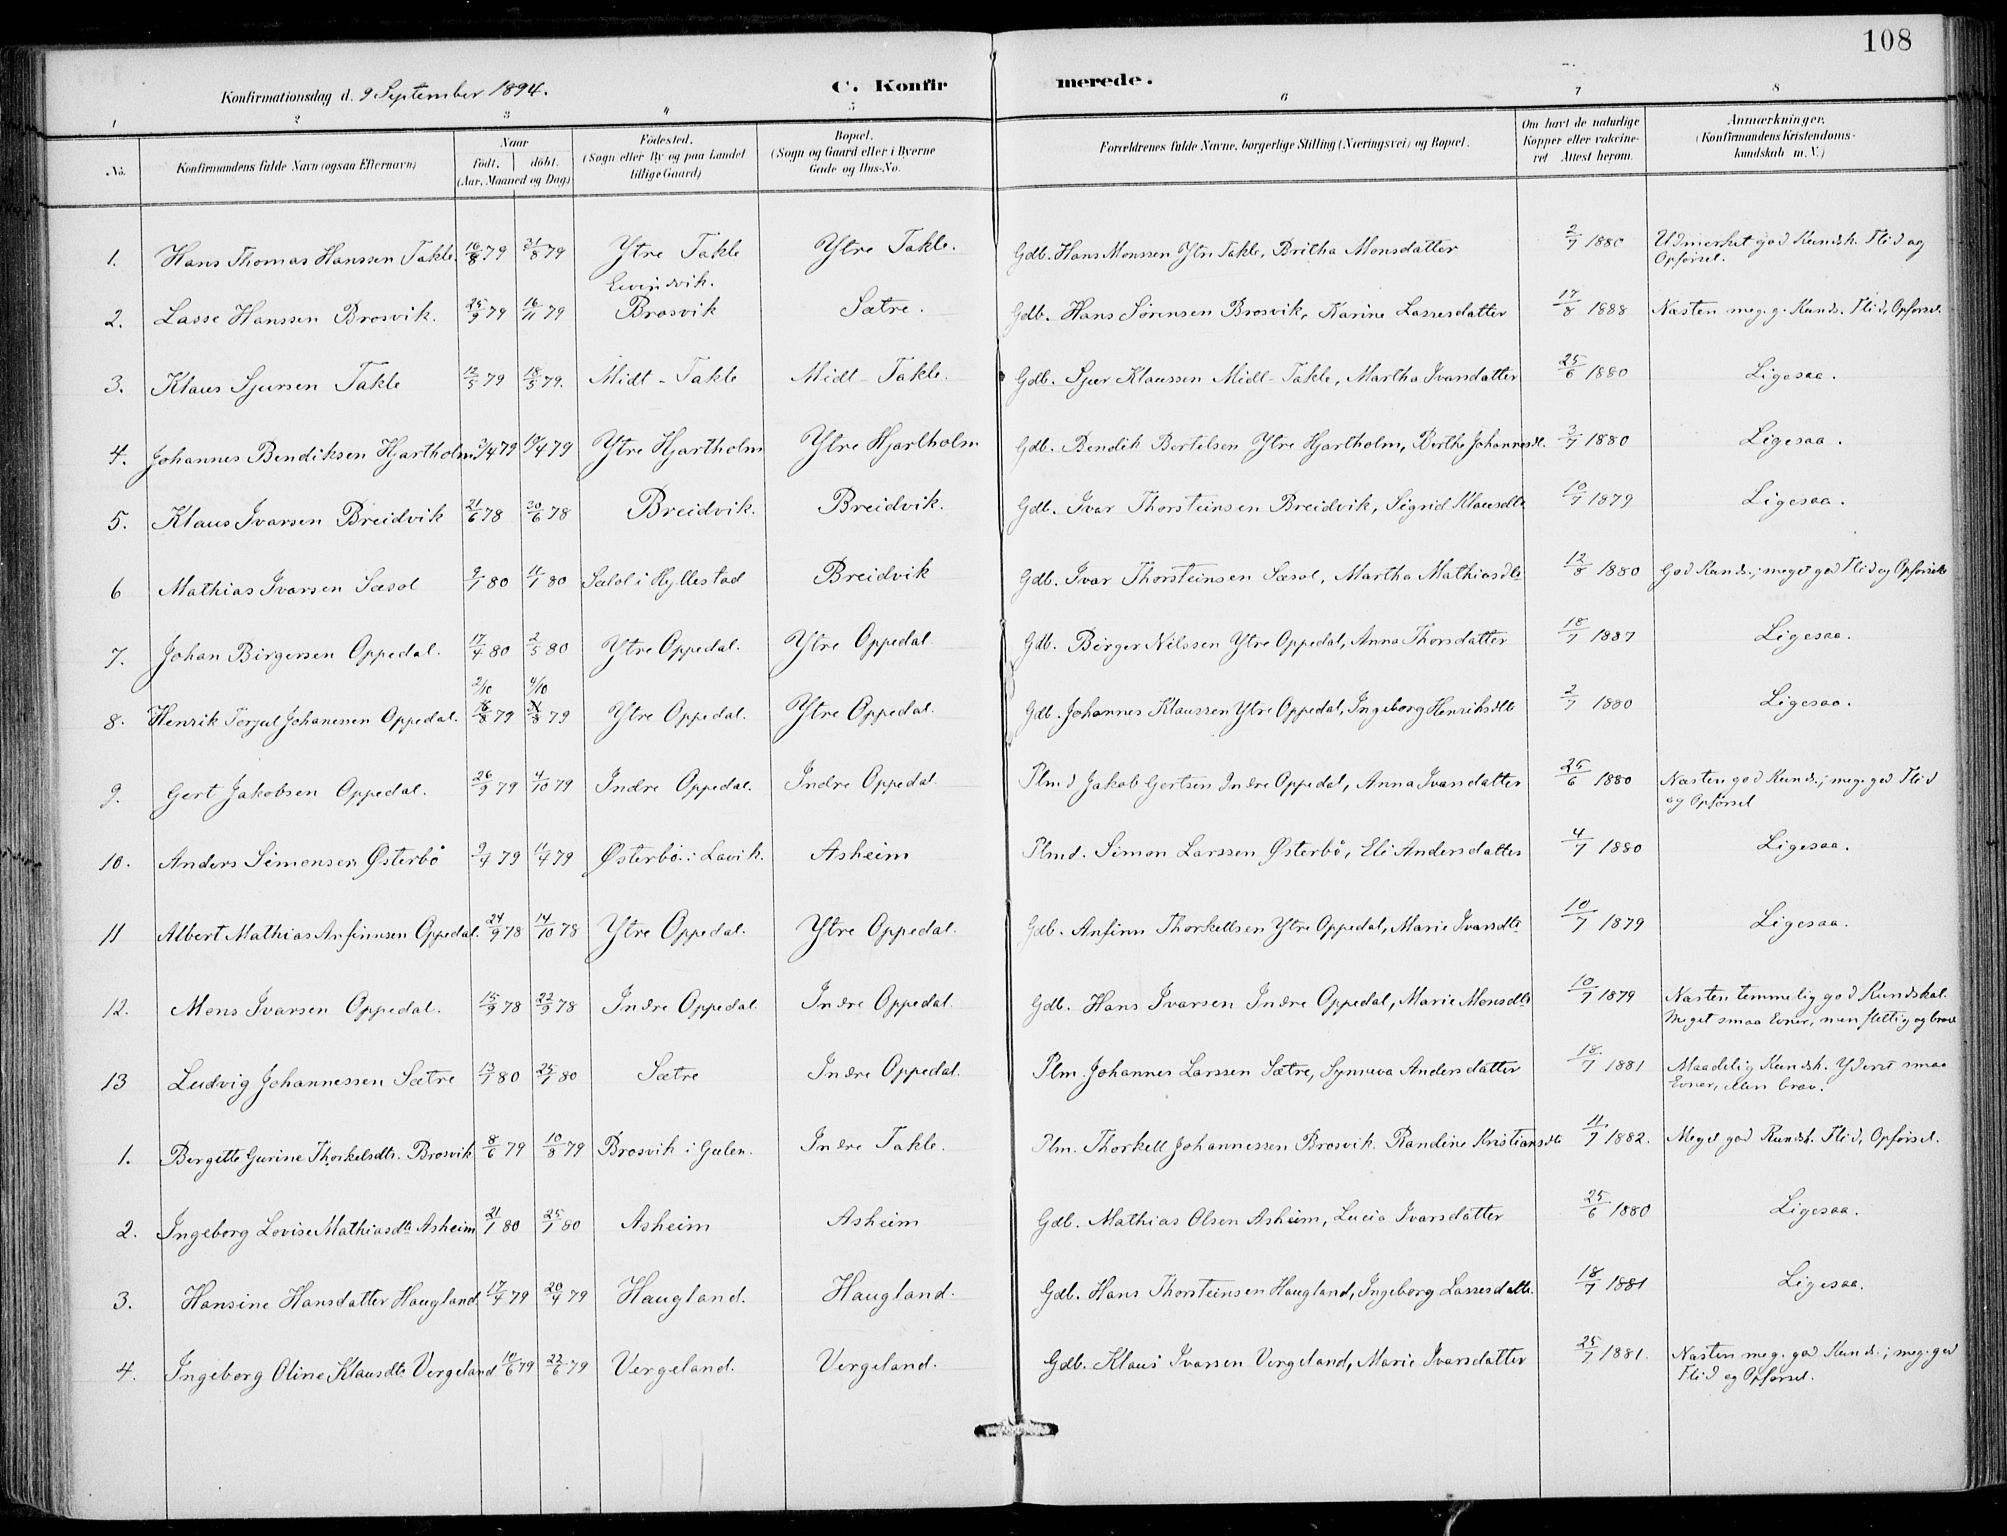 108
Konfirmationsdag d. 9 September 1894. C. Konfir merede.
1 2 3 4 5 6 7 8
No. Konfirmandens fulde Navn (ogsaa Efternavn) Naar født. døbt. (Aar, Maaned og Dag) Fødested. (Sogn eller By og paa Landet tillige Gaard) Bopæl. (Sogn og Gaard eller i Byerne Gade og Hus-No. Forældrenes fulde Navne, borgerlige Stilling (Næringsvei) og Bopæl. Om havt de naturlige Kopper eller vakcineret Attest herom. Anmærkninger. (Konfirmandens Kristendomskundskab m. V.)
1. Hans Thomas Hanssen Takle. 16/8 79 31/8 79 Ytre Takle Ytre Takle. Gdb. Hans Monssen Ytre Takle, Britha Monsdatter 2/7 1880 Udmerket god Kundsk. Flid og Opførsel.
2. Lasse Hanssen Brosvik. 25/9 79 16/11 79 Eivindvik. Brosvik Sætre. Gdb. Hans Sørensen Brosvik, Karine Lassesdatter 17/8 1888 Næsten meg. g. Kunds. Flid, Opførsel.
3. Klaus Sjursen Takle 12/5 79 18/5 79. Midt-Takle Midt-Takle. Gdb. Sjur Klaussen Midt-Takle, Martha Ivarsdatter 25/6 1880 Ligesaa.
4. Johannes Bendiksen Hjartholm 3/4 79 19/4 79 Ytre Hjartholm Ytre Hjartholm Gdb. Bendik Bertelsen Ytre Hjartholm, Berthe Johannesdt. 2/7 1880 Ligesaa.
5. Klaus Ivarsen Breidvik 21/6 78 30/6 78 Breidvik. Breidvik. Gdb. Ivar Thorsteinsen Breidvik, Sigrid Klausdtr 10/7 1879 Ligesaa.
6 Mathias Ivarsen Sæsol 9/1 80 11/1 80 Sæsol i Hyllestad Breidvik Gdb. Ivar Thorsteinsen Sæsol, Martha Mathiasdtr 12/8 1880 God Kunds.; meget god Flid og Opførsel
7. Johan Birgersen Oppedal. 17/4 80 2/5 80 Ytre Oppedal. Ytre Oppedal. Gdb. Birger Nilssen Ytre Oppedal, Anna Thorsdatter 18/7 1887 Ligesaa.
8. Henrik Torjul Johanessen Oppedal. 2/10 16/8 79 4/10 31/8 79 Ytre Oppedal. Ytre Oppedal. Gdb. Johannes Klaussen Ytre Oppedal, Ingeborg Henriksdtr 2/7 1880 Ligesaa.
9. Gert Jakobsen Oppedal. 26/9 79 4/10 79 Indre Oppedal. Indre Oppedal. Plmd Jakob Gertsen Indre Oppedal, Anna Ivarsdatter 25/6 1880 Næsten god Kunds.; meg. god Flid og Opførsel
10. Anders Simonsen Østerbø 9/4 79 11/4 79 Østerbø i Lavik. Asheim Plmd. Simon Larssen Østerbø, Eli Andersdatter 4/7 1880 Ligesaa.
11 Albert Mathias Anfinnsen Oppedal. 24/9 78 14/10 78 Ytre Oppedal. Ytre Oppedal. Gdb. Anfinn Thorkellsen Ytre Oppedal, Marie Ivarsdtr 10/7 1879 Ligesaa.
12. Mons Ivarsen Oppedal. 15/9 78 22/9 78 Indre Oppedal. Indre Oppedal. Gdb. Hans Ivarsen Indre Oppedal, Marie Monsdtr 10/7 1879 Næsten temmelig god Kundskab. Meget smaa Evner, men flittig og brav
13 Ludvig Johannessen Sætre 13/1 80 25/1 80 Sætre Indre Oppedal. Plm. Johannes Larssen Sætre, Synneva Andersdatter 18/7 1881 Maadelig Kundsk. Yderst smaa Evner, Men brav.
1. Bergitte Gurine Thorkelsdtr. Brosvik 8/6 79 10/8 79 Brosvik i Gulen. Indre Takle. Plm. Thorkell Johannessen Brosvik. Randine Kristiansdtr 11/7 1882. Meget god Kundsk. Flid, Opførsel.
2. Ingeborg Lovise Mathiasdtr Asheim 21/1 80 25/1 80 Asheim Asheim Gdb. Mathias Olsen Asheim, Lucia Ivarsdatter 25/6 1880 Ligesaa.
3. Hansine Hansdatter Haugland 17/4 79 20/4 79 Haugland. Haugland. Gdb. Hans Thorsteinsen Haugland, Ingeborg Lassesdattr. 18/7 1881 Ligesaa.
4. Ingeborg Oline Klausdtr Vergeland 10/6 79 22/6 79 Vergeland. Vergeland. Gdb. Klaus Ivarsen Vergeland, Marie Ivarsdatter 25/7 1881. Næsten meg. god Kunds.; meg. god Flid og Opførsel.